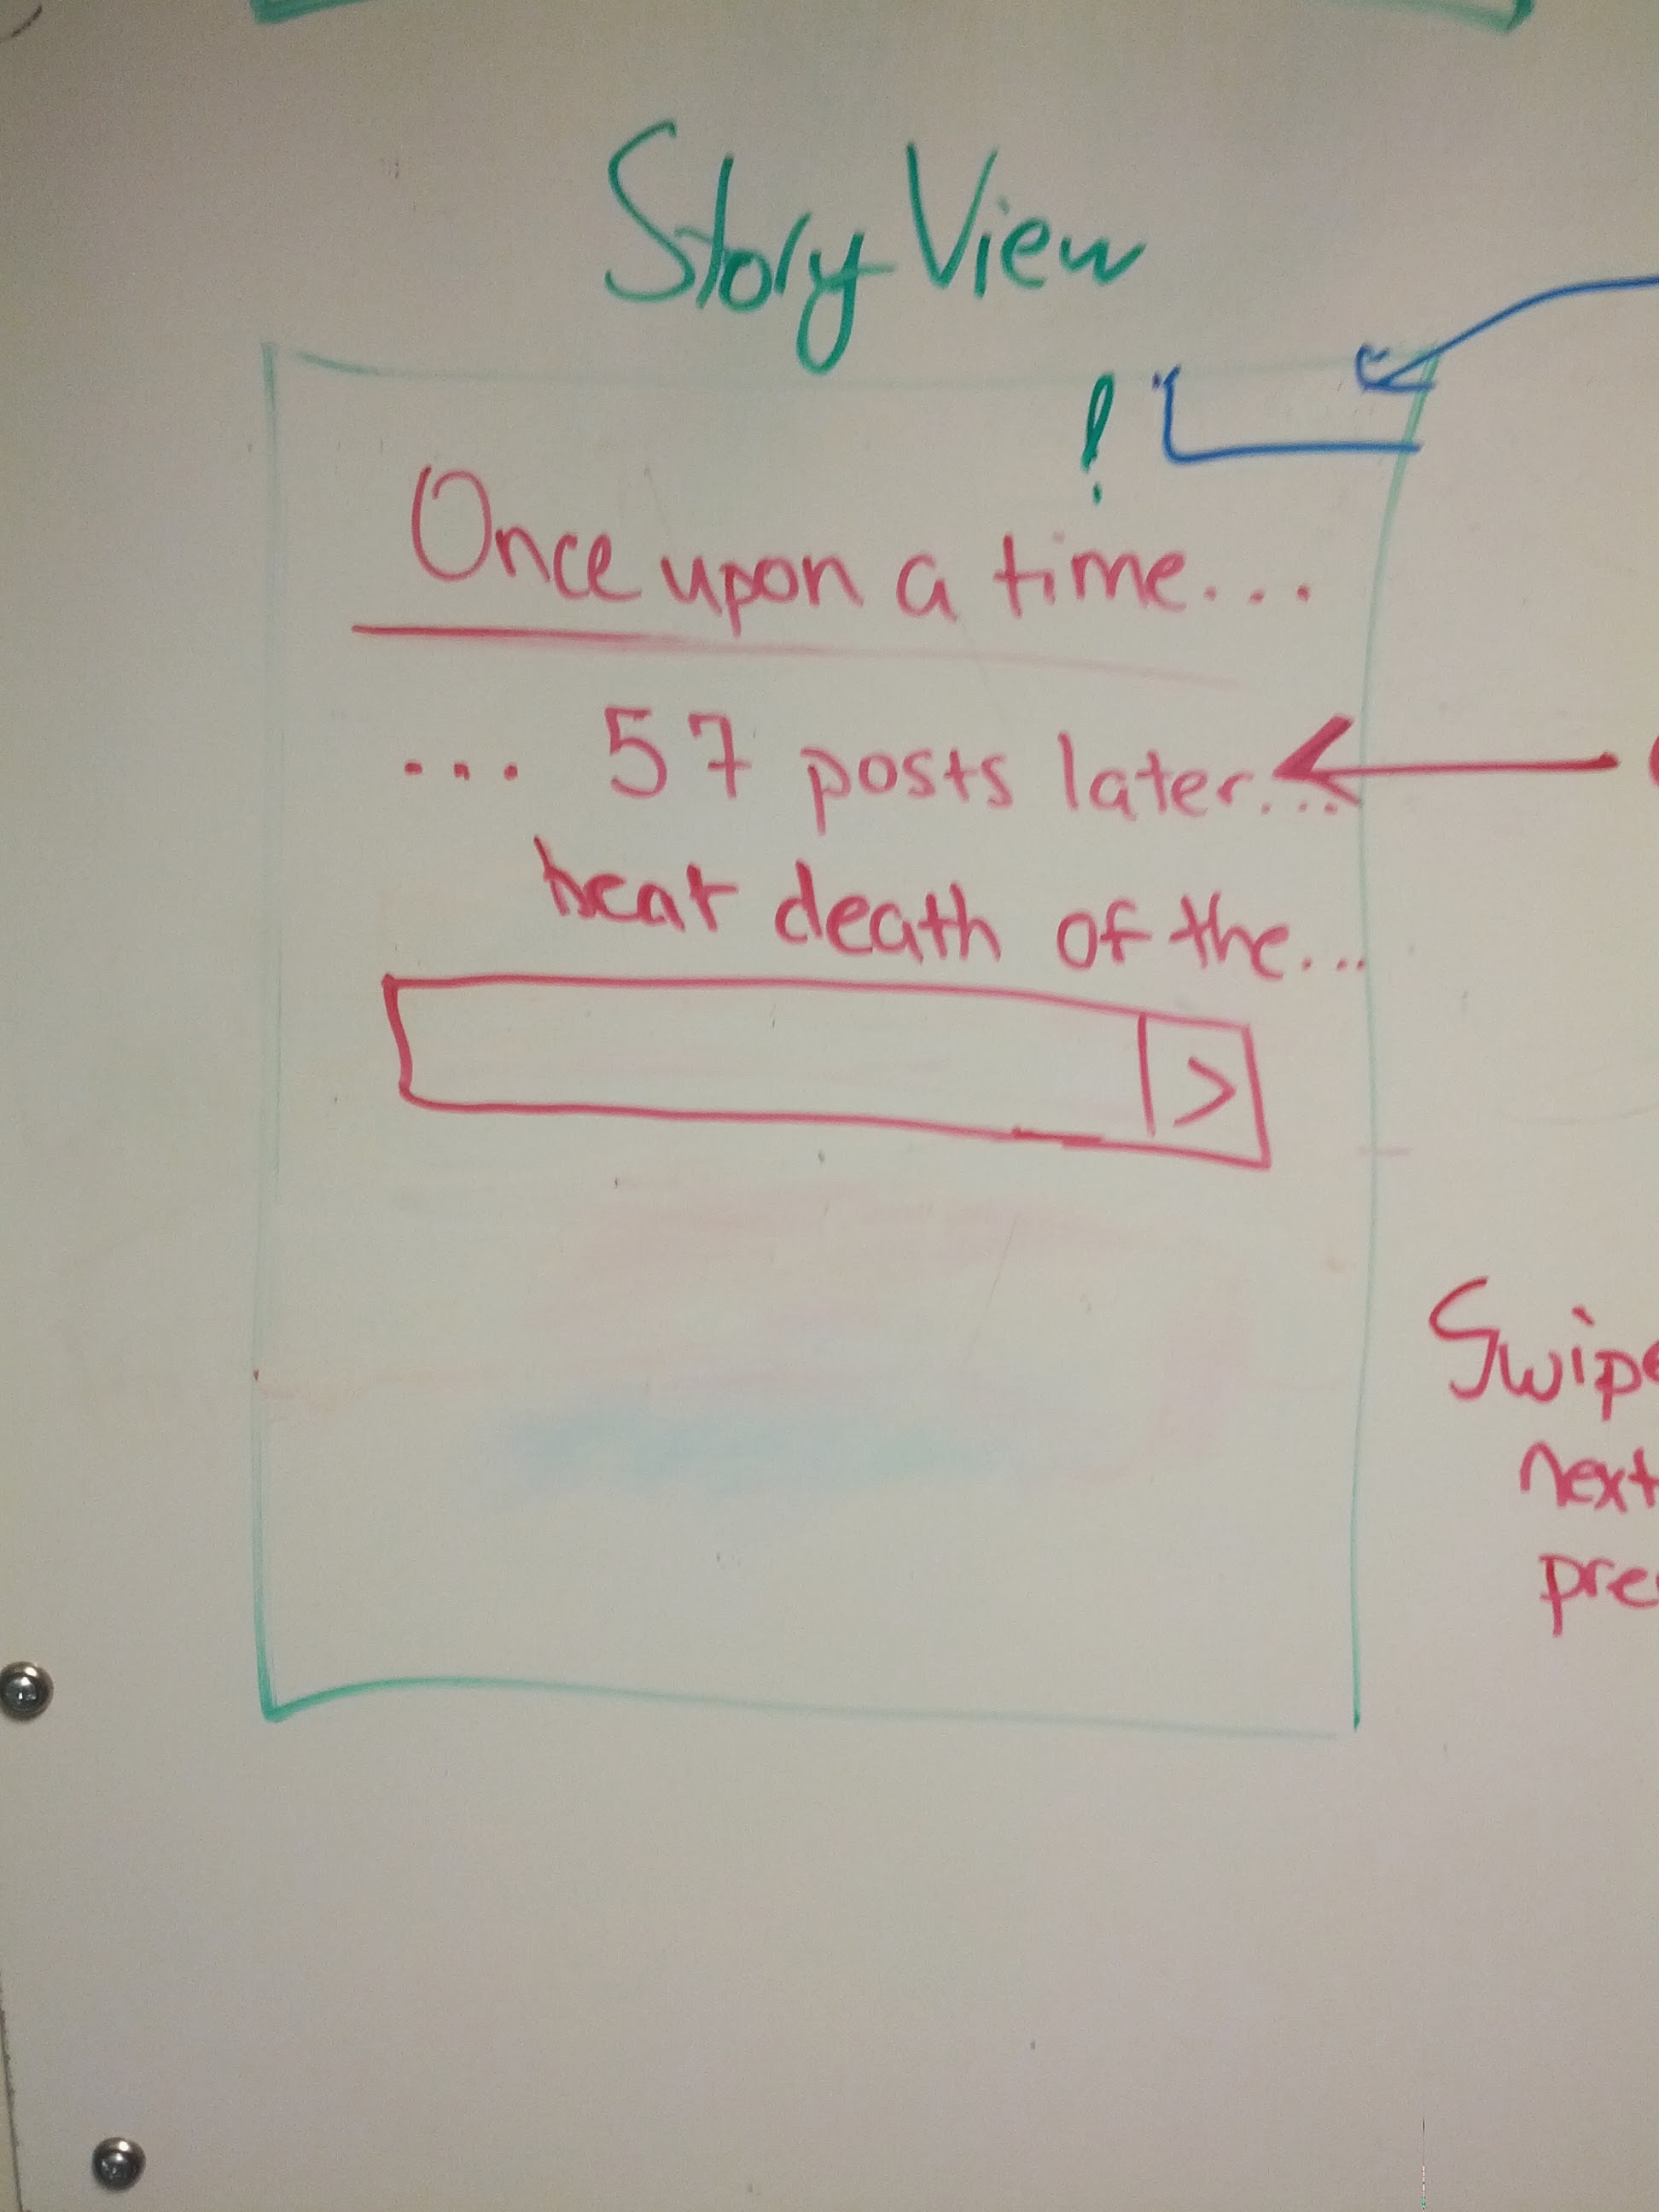 Story View
!
Once upon a time...
... 57 posts later...
heat death of the...
>
Swipe
next
pre